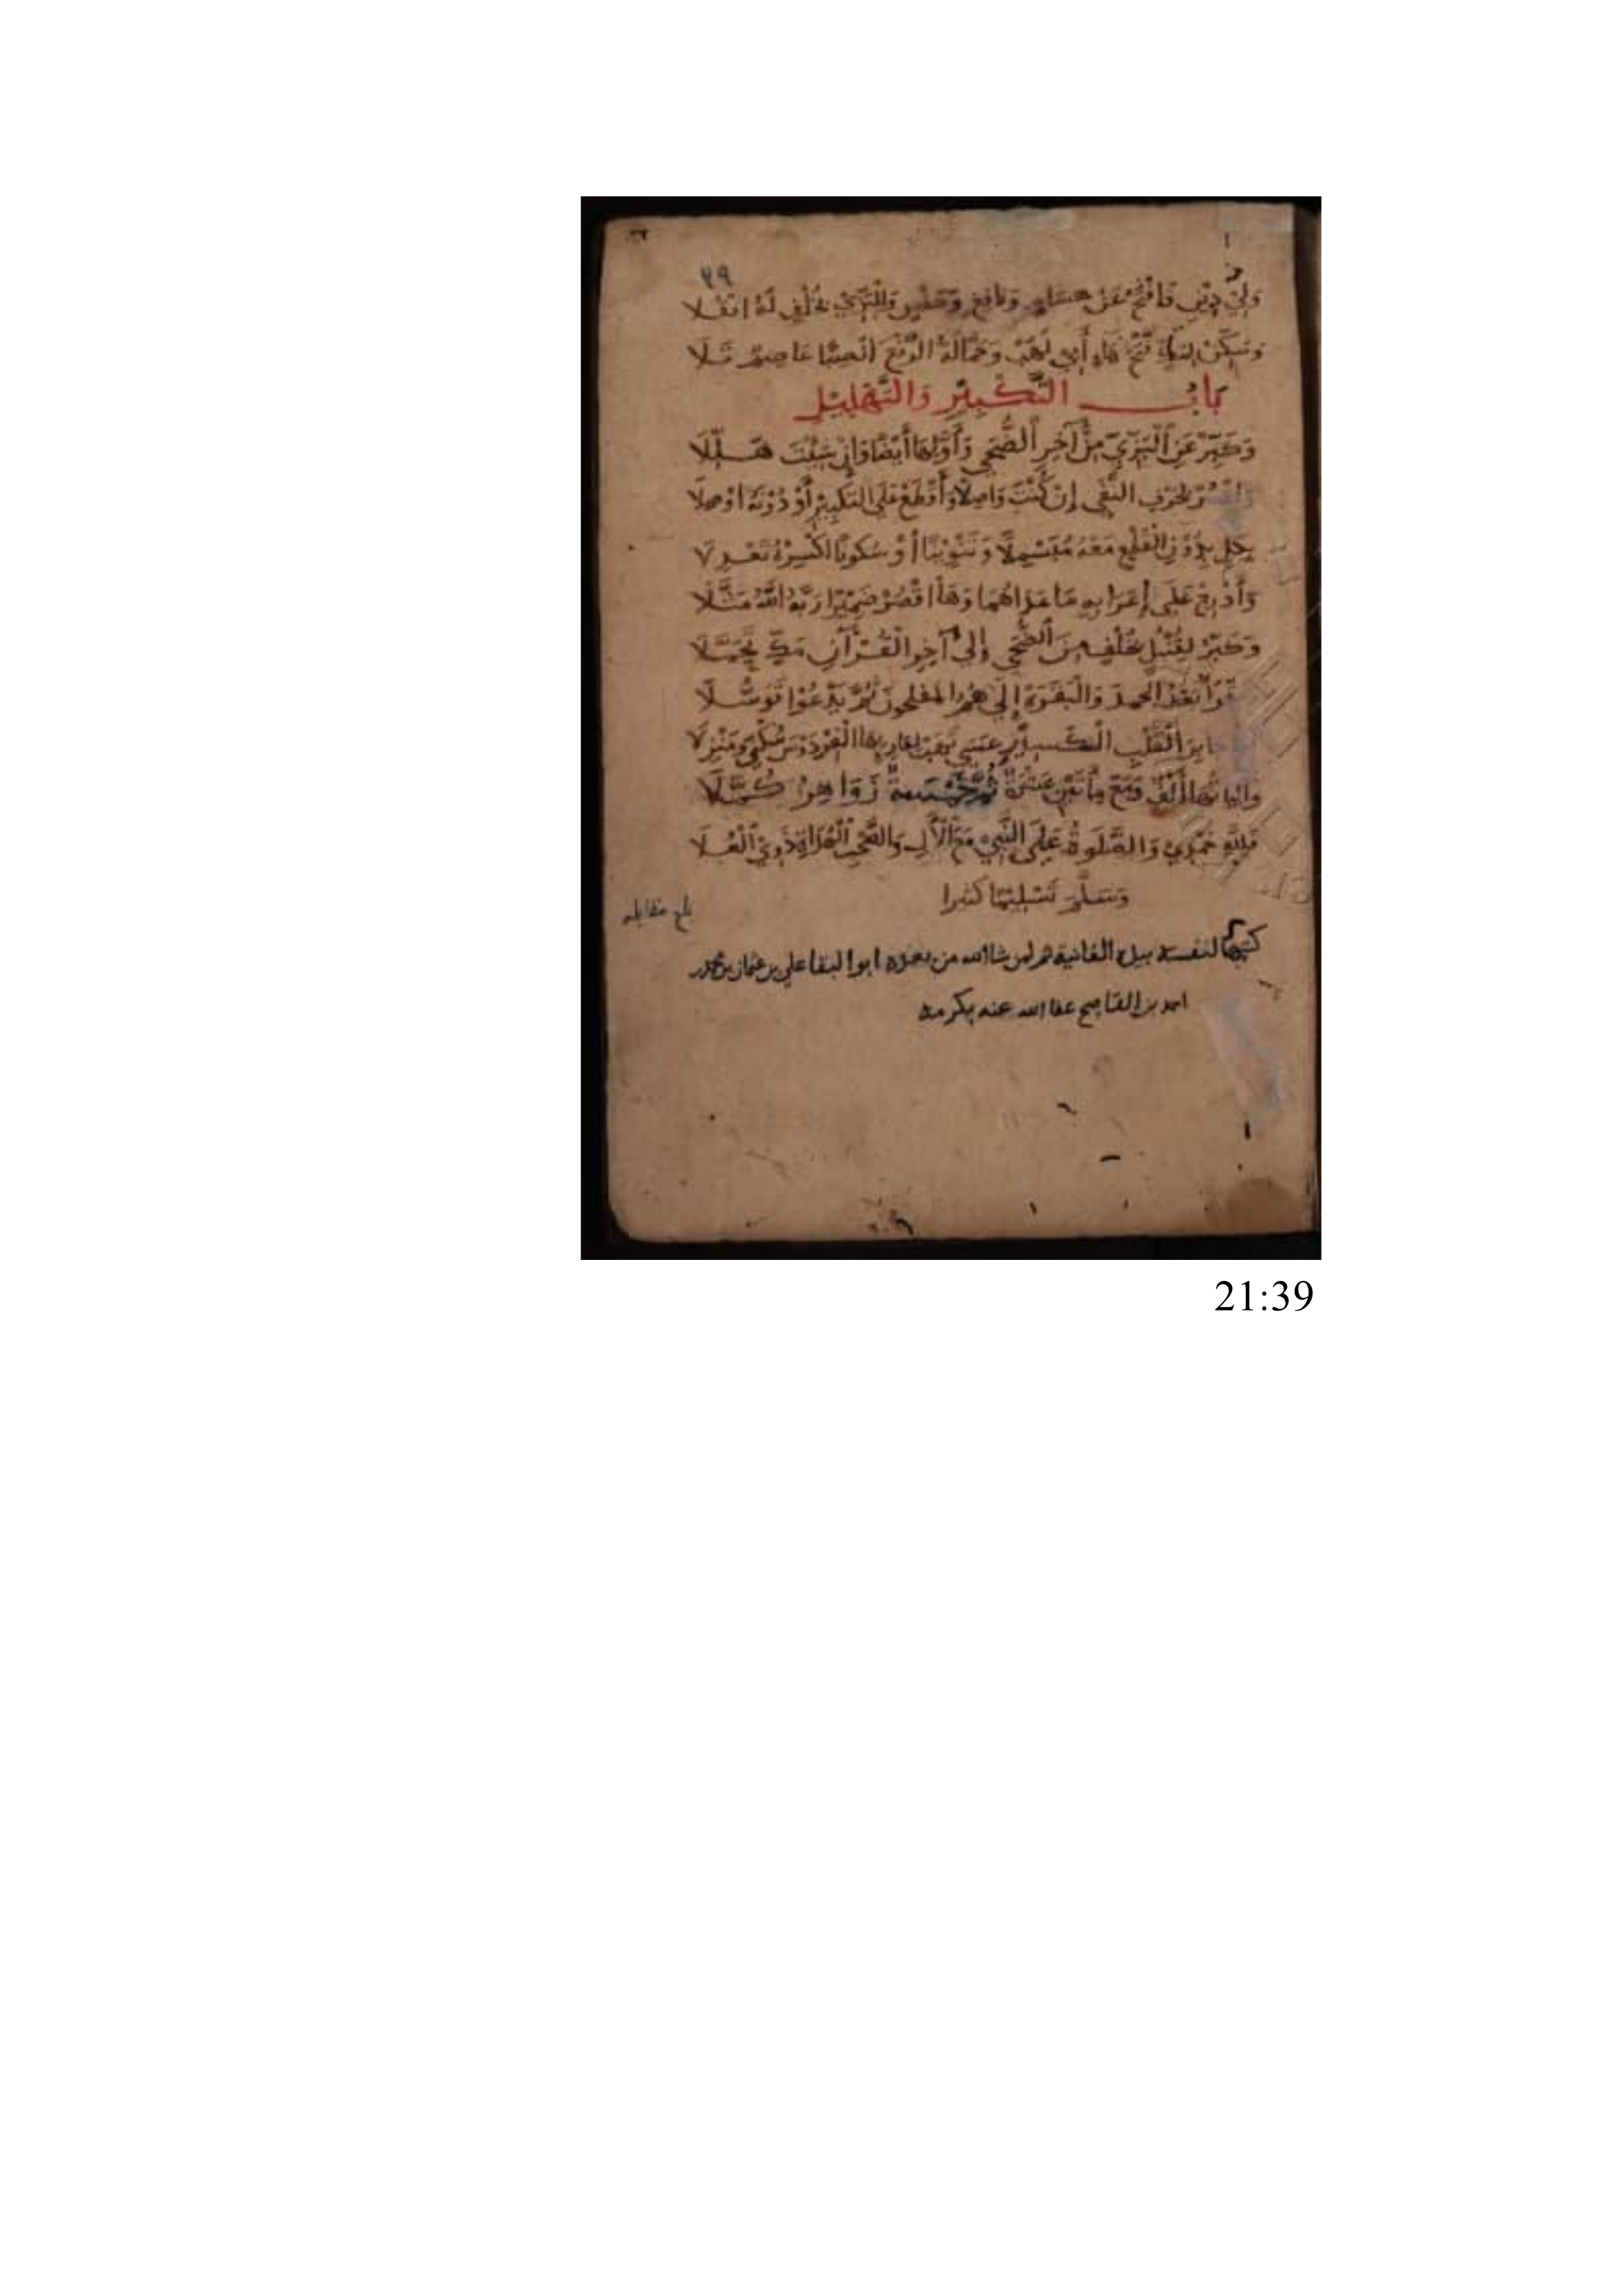 ٢٩
وَلِيْ دِيْنِ فَافْتَحْ عَنْ هشام وَنافعٍ وَحفْصٍ وَللْبَزِّيْ بخُلْفٍ لَهُ انْقُلا
وَسَكِّنْ لمكٍّ فَتْحَ هَاءِ أَبِي لَهَبْ وَحَمَّالَةُ الرَّفْعَ انْصِبًا عَاصِمٌ تَلَا
بَابُ التَّكْبِيْرِ وَالتَّهْلِيْلِ
وَكَبِّرْ عَنِ الْبَزِّيِّ مِنْ آخِرِ الضُّحَى وَأَوَّلِهَا أَيْضًا وَإِنْ شِئْتَ هَلِّلَا
لحَرْفِ النَّفْيِ إِنْ كُنْتَ وَاصِلًا وَأَقْطَعْ عَلَى التكبِيْرِ أَوْ دُوْنَهُ أَوْصِلَا
بِدُوْنِ الْقَطْعِ مَعْهُ مُبَسْمِلًا وَتَنْوِيْنًا أَوْ سُكُونًا اكْسِرْهُ تَعْدِلَا
وَأَدْرِجْ عَلَى إِعْرَابِهِ مَا عَدَاهُمَا وَهَا اقْصُرْ ضَمِيْرًا رَبَّهُ اللَّهُ مَثَّلَا
وَكَبِّرْ لِقُنْبُلٍ بخُلْفٍ مِنَ الضُّحَى إِلَى آخِرِ الْقُرْآنِ مَكٍّ تَجَمَّلَا
بَعْدَ الْحمدَ وَالْبَقَرَةِ إِلَى هُمُ المفلحونَ ثُمَّ يَدْعُوْا تَوَسُّلَا
الْقَلْبِ الْكَسِيْرِ عَسَى يَهَبْ لِقَارِيهَا الْفِرْدَوْسَ سُكْنَى وَمَنْزِلَا
وَأبياتُهَا أَلْفٌ وَمَعْ مِأَتَيْنِ عَشْرَةٌ ثُمَّ خَمْسَةٌ زَوَاهِرُ كُمَّلَا
فَلِلَّهِ حَمْدِيْ وَالصَّلَوةُ عَلَى النَّبِيْ مَعَ الْآلِ وَالصَّحْبِ الْهُدَاةِ ذَوِيْ الْعُلَا
وَسَلَّمَ تَسْلِيْمًا كثيرا
بلغ مقابله
كتبها لنفسه بيده الفانية ثم لمن شاالله من بعده ابوا البقا علي بن عثمان بن محمد بن
احمد بن القاصح عفا الله عنه بكرمه
21:39